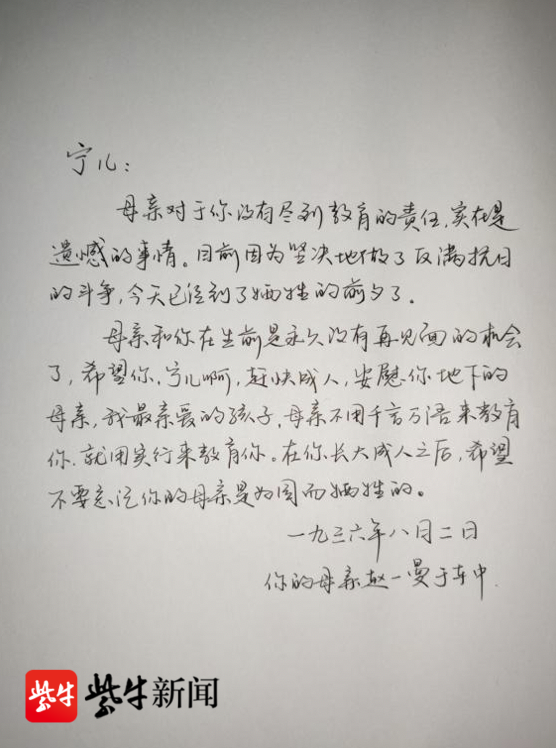 宁儿：
母亲对于你没有尽到教育的责任，实在是
遗憾的事情。目前因为坚决地做了反满抗日
的斗争，今天已经到了牺牲的前夕了。
母亲和你在生前是永久没有再见面的机会
了，希望你，宁儿啊，赶快成人，安慰你地下的
母亲，我最亲爱的孩子，母亲不用千言万语来教育
你，就用实行来教育你。在你长大成人之后，希望
不要忘记你的母亲是为国而牺牲的。
一九三六年八月二日
你的母亲赵一曼于车中
紫牛 紫牛新闻